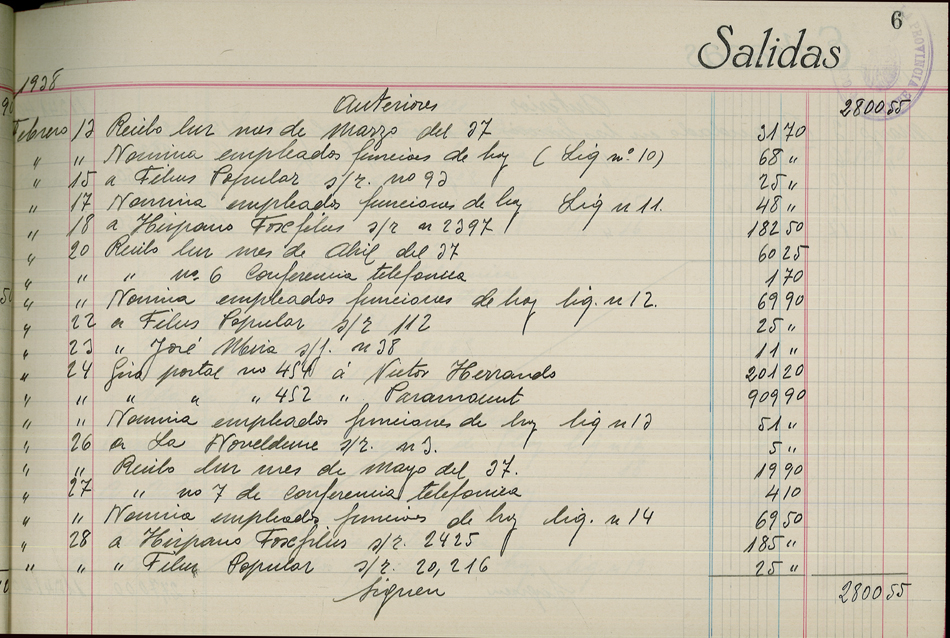 6
Salidas
1938
Anteriores 2800 55
Febrero 13 Recibo luz mes de Marzo del 37 31 70
" " Nomina empleados funciones de hoy (Liq nº 10) 68 "
" 15 a Films Popular s/r. no 93 25 "
" 17 Nomina empleados funciones de hoy Liq n 11. 48 "
" 18 a Hispano Foxfilms s/r n 2397 182 50
" 20 Recibo luz mes de Abril del 37 60 25
" " " no. 6 Conferencia telefonica 1 70
" " Nomina empleados funciones de hoy liq. n 12. 69 90
" 22 a Films Popular s/r 112 25 "
" 23 " José Mira s/f. n 38 11 "
" 24 Giro postal no 454 á Victor Herrando 201 20
" " " " " 452 " Paramount 909 90
" " Nomina empleados funciones de hoy liq n 13 51 "
" 26 a La Noveldense s/r. n 3. 5 "
" " Recibo luz mes de Mayo del 37. 19 90
" 27 " no 7 de conferencia telefonica 4 10
" " Nomina empleados funciones de hoy liq. n 14 69 50
" 28 a Hispano Foxfilms s/r. 2425 185 "
" " " Films Popular s/r. 20,216 25 "
Siguen 2800 55